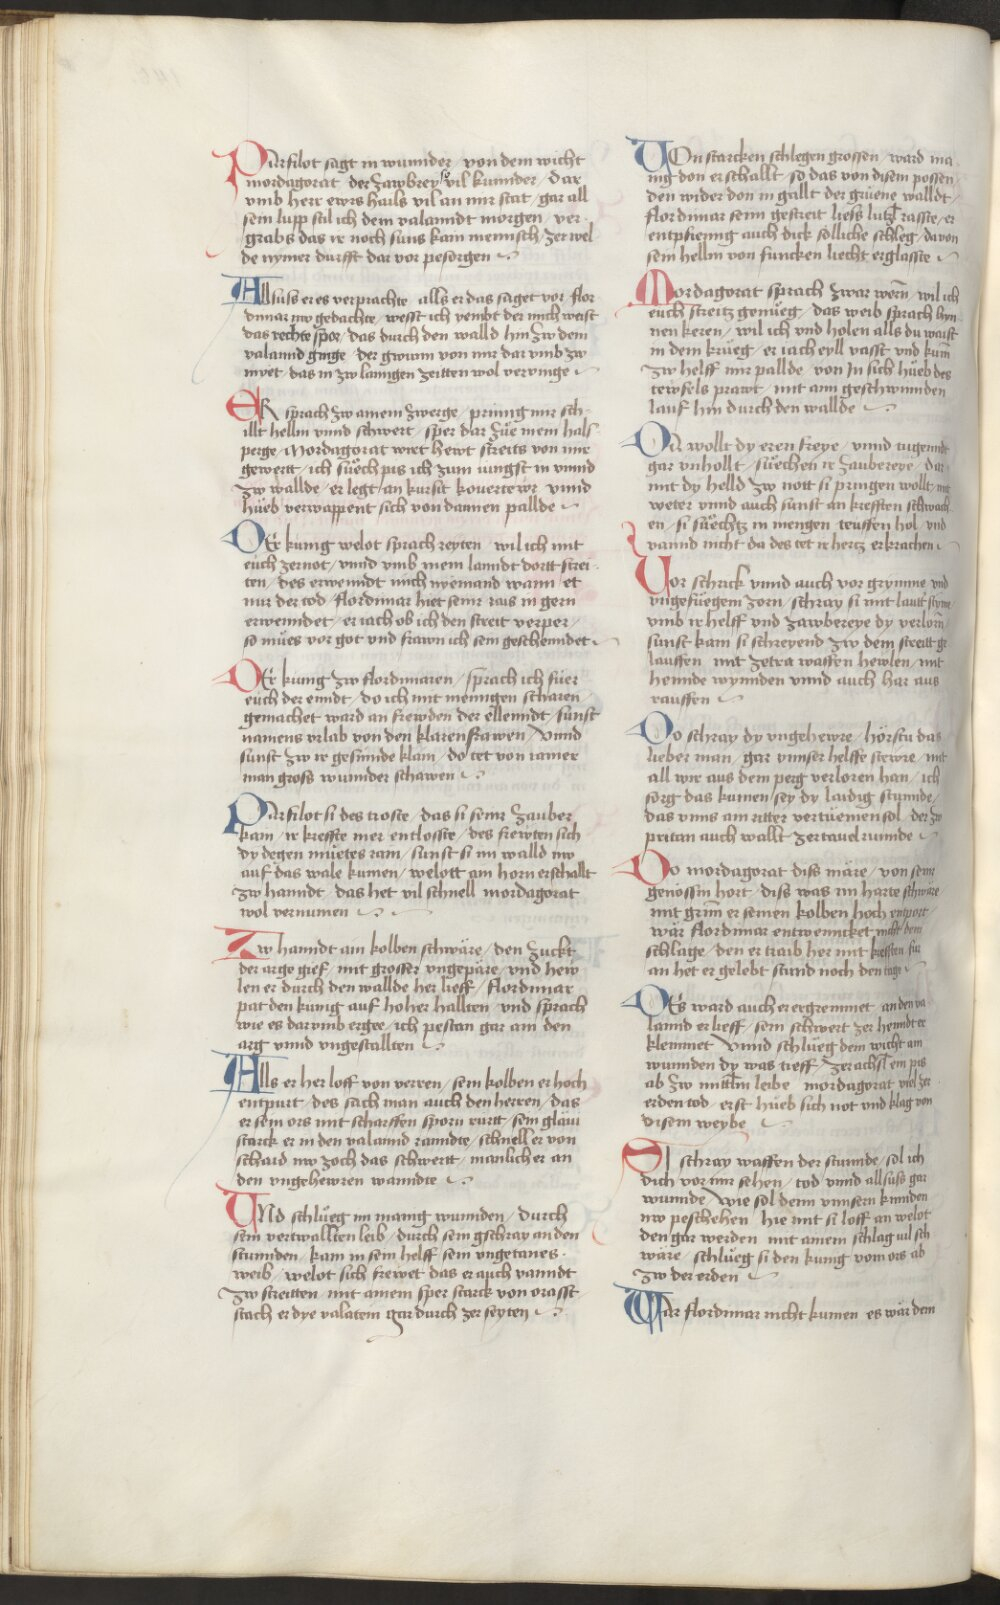 Pürsilot sagt in wunnder / von dem wicht
mordagorat der zawbrey vil kunnder / dar
vmb herr ewrs hails vil an mir stat / gar all
sein lupp stil ich dem valanndt morgen / ver
grabs das ir noch suns kain mennsch / zer wel
de nymer durfft dar vor pesorgen
Allsuss er es verprachte / alls er das saget vor flor
dimar nw gedachte / wesst ich yembt der mich weist
das rechte spor / das durch den walld hin zw dem
valannd ginge / der gwunn von mir dar vmb zw
myet / das in zw lanngen zeitten wol vervinge
Er sprach zw ainem zwerge / prinng mir sch
illt hellm vnnd schwert / sper dar zue mein hals
perge / Mordagorat wirt hewt streits von mir
gewertt / ich suech pis ich zum iungst in vinnd
zw wallde / er legt an kursit kovertewr vnnd
hueb verwappent sich von dannen pallde
Der kunig welot sprach reyten / wil ich mit
euch zer not / vnnd vmb mein lanndt dortt strei
ten / des erwenndt mich nyemand wann et
nur der tod / flordimar hiet seinr rais in gern
erwenndet / er iach ob ich den streit verper /
so mues vor got vnd frawn ich sein geschenndet
Der kunig zw flordimaren / sprach ich fuer
euch der enndt / do ich mit menigen scharen
gemachet ward an frewden der ellenndt / sunst
namens vrlab von den klaren frawen / vnnd
sunst zw ir gesinnde klain / do tet von iamer
man gross wunnder schawen
Pursilot si des troste / das si seinr zauber
kain / ir kreffte mer entlosste / des frewten sich
dy degen muetes rain / sunst si im walld nw
auf das wale kumen / welott ain horn erschallt
zw hanndt / das het vil schnell mordagorat
wol vernumen
Zw hanndt ain kolben schwäre / den zuckt
der arge gief / mit grosser vngepäre / vnd hew
len er durch den wallde her lieff / flordimar
pat den kunig auf hoher hallten / vnd sprach
wie es dar vmb ergee / ich pestan gar ain den
arg vnnd vngestallten
Alls er her loff von verren / sein kolben er hoch
entpurt / des sach man auch den herren / das
er sein ors mit scharffen sporn rurtt / sein gläuı
starck er in den valannd ranndte / schnell er von
schard nw zoch das schwertt / manlich er an
den vngehewren wanndte
Vnd schlueg im manig wunnden / durch
sein vertwallten leib / durch sein gschray an den
stunnden / kam in sein helff sein vngetanes
weib / welot sich frewet das er auch vanndt
zw streitten / mit ainem sper starck von orasst
stach er dye valatein gar durch zer seyten
Von starcken schlegen grossen / ward ma
nig don erschallt / so das von disem possen
den wider don in gallt der gruene walldt /
flordimar seim gestreit liess lutzl rasste / er
entpfienng auch dick solliche schleg / da von
sein hellm von funcken liecht erglasste
Mordagorat sprach zwar wern / wil ich
euch streitz genueg / das weib sprach hyn
nen keren / wil ich vnd holen alls du waist
in dem krueg / er iach eyll vasst vnd kum
zw helff mir pallde / von Im sich hueb des
tewfels prawt / mit ainn geschwinnden
lauf hin durch den wallde
Do wollt dy eren freye / vnnd tugenndt
gar vnhollt / suechen ir zaubereye / dar
mit dy helld zw nott si pringen wollt / mit
weter vnnd auch sunst an krefften schwach
en / si suechtz in mengen teuffen hol / vnd
vannd nicht da des tet ir hertz erkrachen
Vor schrick vnnd auch vor grymme vnd
vngefuegem zorn / schray si mit lautt styme
vmb ir helff vnd zawbereye dy verlorn /
sunst kam si schreyend zw dem streitt ge
lauffen / mit zetra waffen hewlen / mit
hennde wynnden vnnd auch har aus
rauffen
Do schray dy vngehewre / horstu das
lieber man / gar vnnser helffe stewre / mit
all wir aus dem perg verloren han / ich
sorg das kumen / sey dy laidig stunnde /
das vnns ain ritter vertuemen sol / der zw
pritan auch wallt / zer tavel runnde
Do mordagorat diss märe / von seiner
genossin hort / diss was im harte schwäre
mit grim er seinen kolben hoch enport /
wär flordimar entwenncket nicht dem
schlage / den er traib her mit krefften fur
an het er gelebt stund noch den tage
Des ward auch er ergremmet / an den va
lannd er lieff / sein schwert zer henndt er
klemmet / vnnd schlueg dem wicht ain
wunnden dy was tieff / zer achsl ein pis
ab zw mittlm leibe / mordagorat viel zer
erden tod / erst hueb sich not vnd klag von
disem weybe
Si schray waffen der stunnde / sol ich
dich vor mir sehen / tod vnnd allsuss gar
wunnde / wie sol denn vnnsern kinnden
nw peschehen / hie mit si loff an welot
den gar werden / mit ainem schlag vil sch
wäre / schlueg si den kunig vom ors ab
zw der erden
Wär flordimar nicht kumen / es wär dem